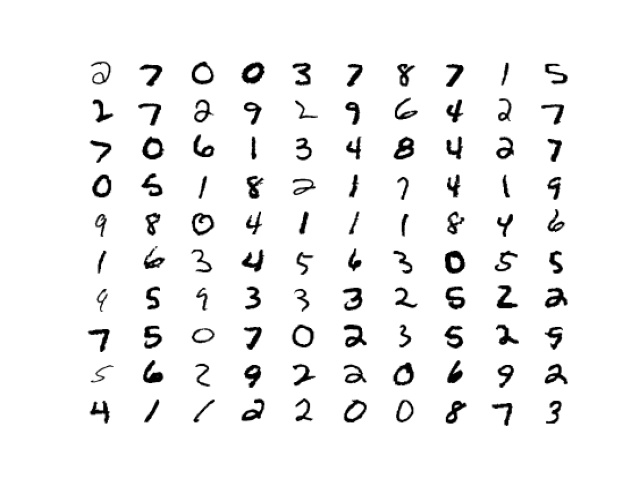 2 7 0 0 3 7 8 7 1 5
2 7 2 9 2 9 6 4 2 7
7 0 6 1 3 4 8 4 2 7
0 5 1 8 2 1 7 4 1 9
9 8 0 4 1 1 1 8 4 6
1 6 3 4 5 6 3 0 5 5
9 5 9 3 3 3 2 5 2 2
7 5 0 7 0 2 3 5 2 5
5 6 2 9 2 2 0 6 9 2
4 1 1 2 2 0 0 8 7 3